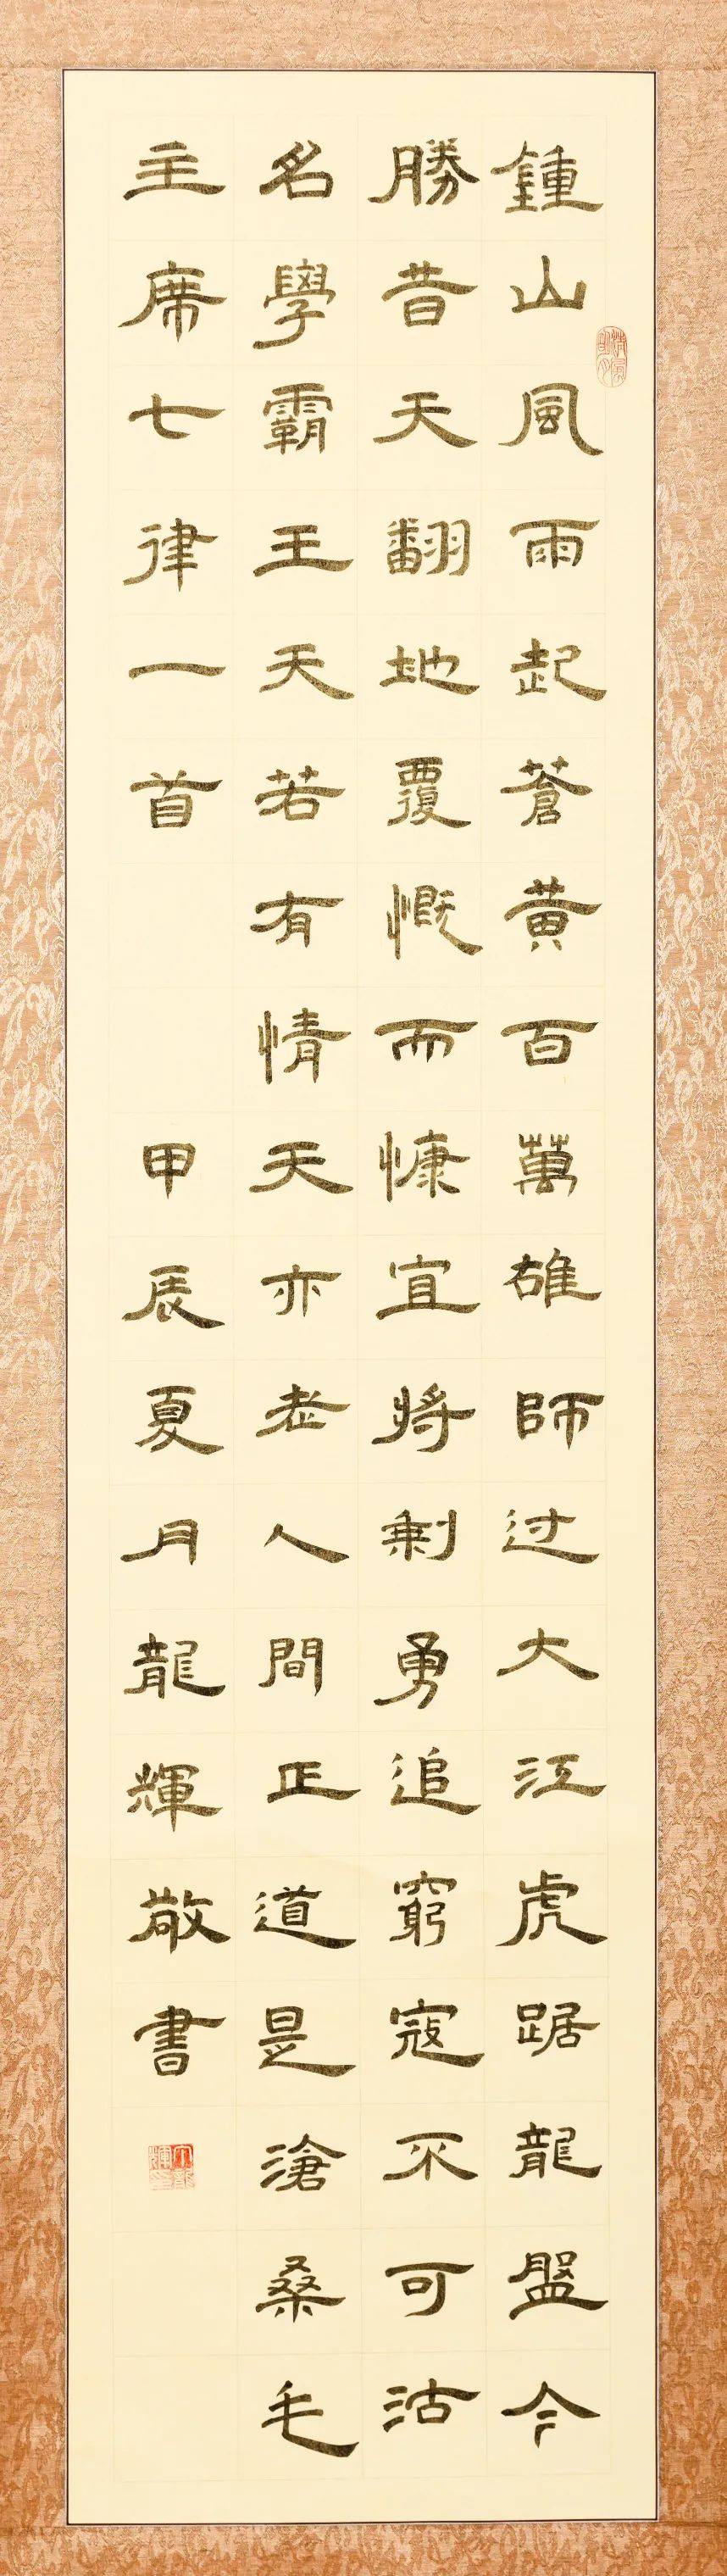 鍾山風雨起蒼黃百萬雄師过大江虎踞龍盤今
勝昔天翻地覆慨而慷宜將剩勇追窮寇不可沽
名學霸王天若有情天亦老人間正道是滄桑毛
主席七律一首 甲辰夏月龍輝敬書